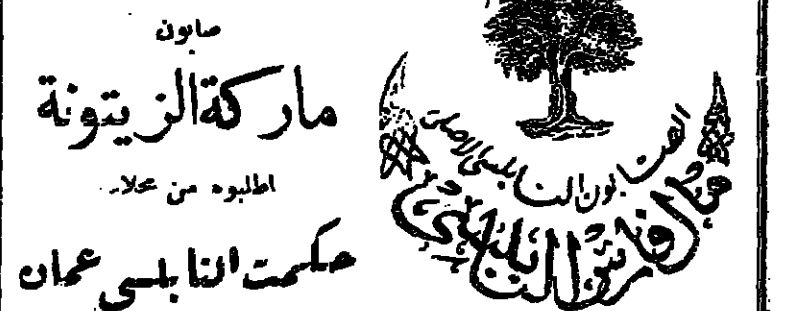 صابون
ماركة الزيتونة
اطلبوه من محلات
حكمت النابلسي عمان
الصابون النابلسي الاصلي